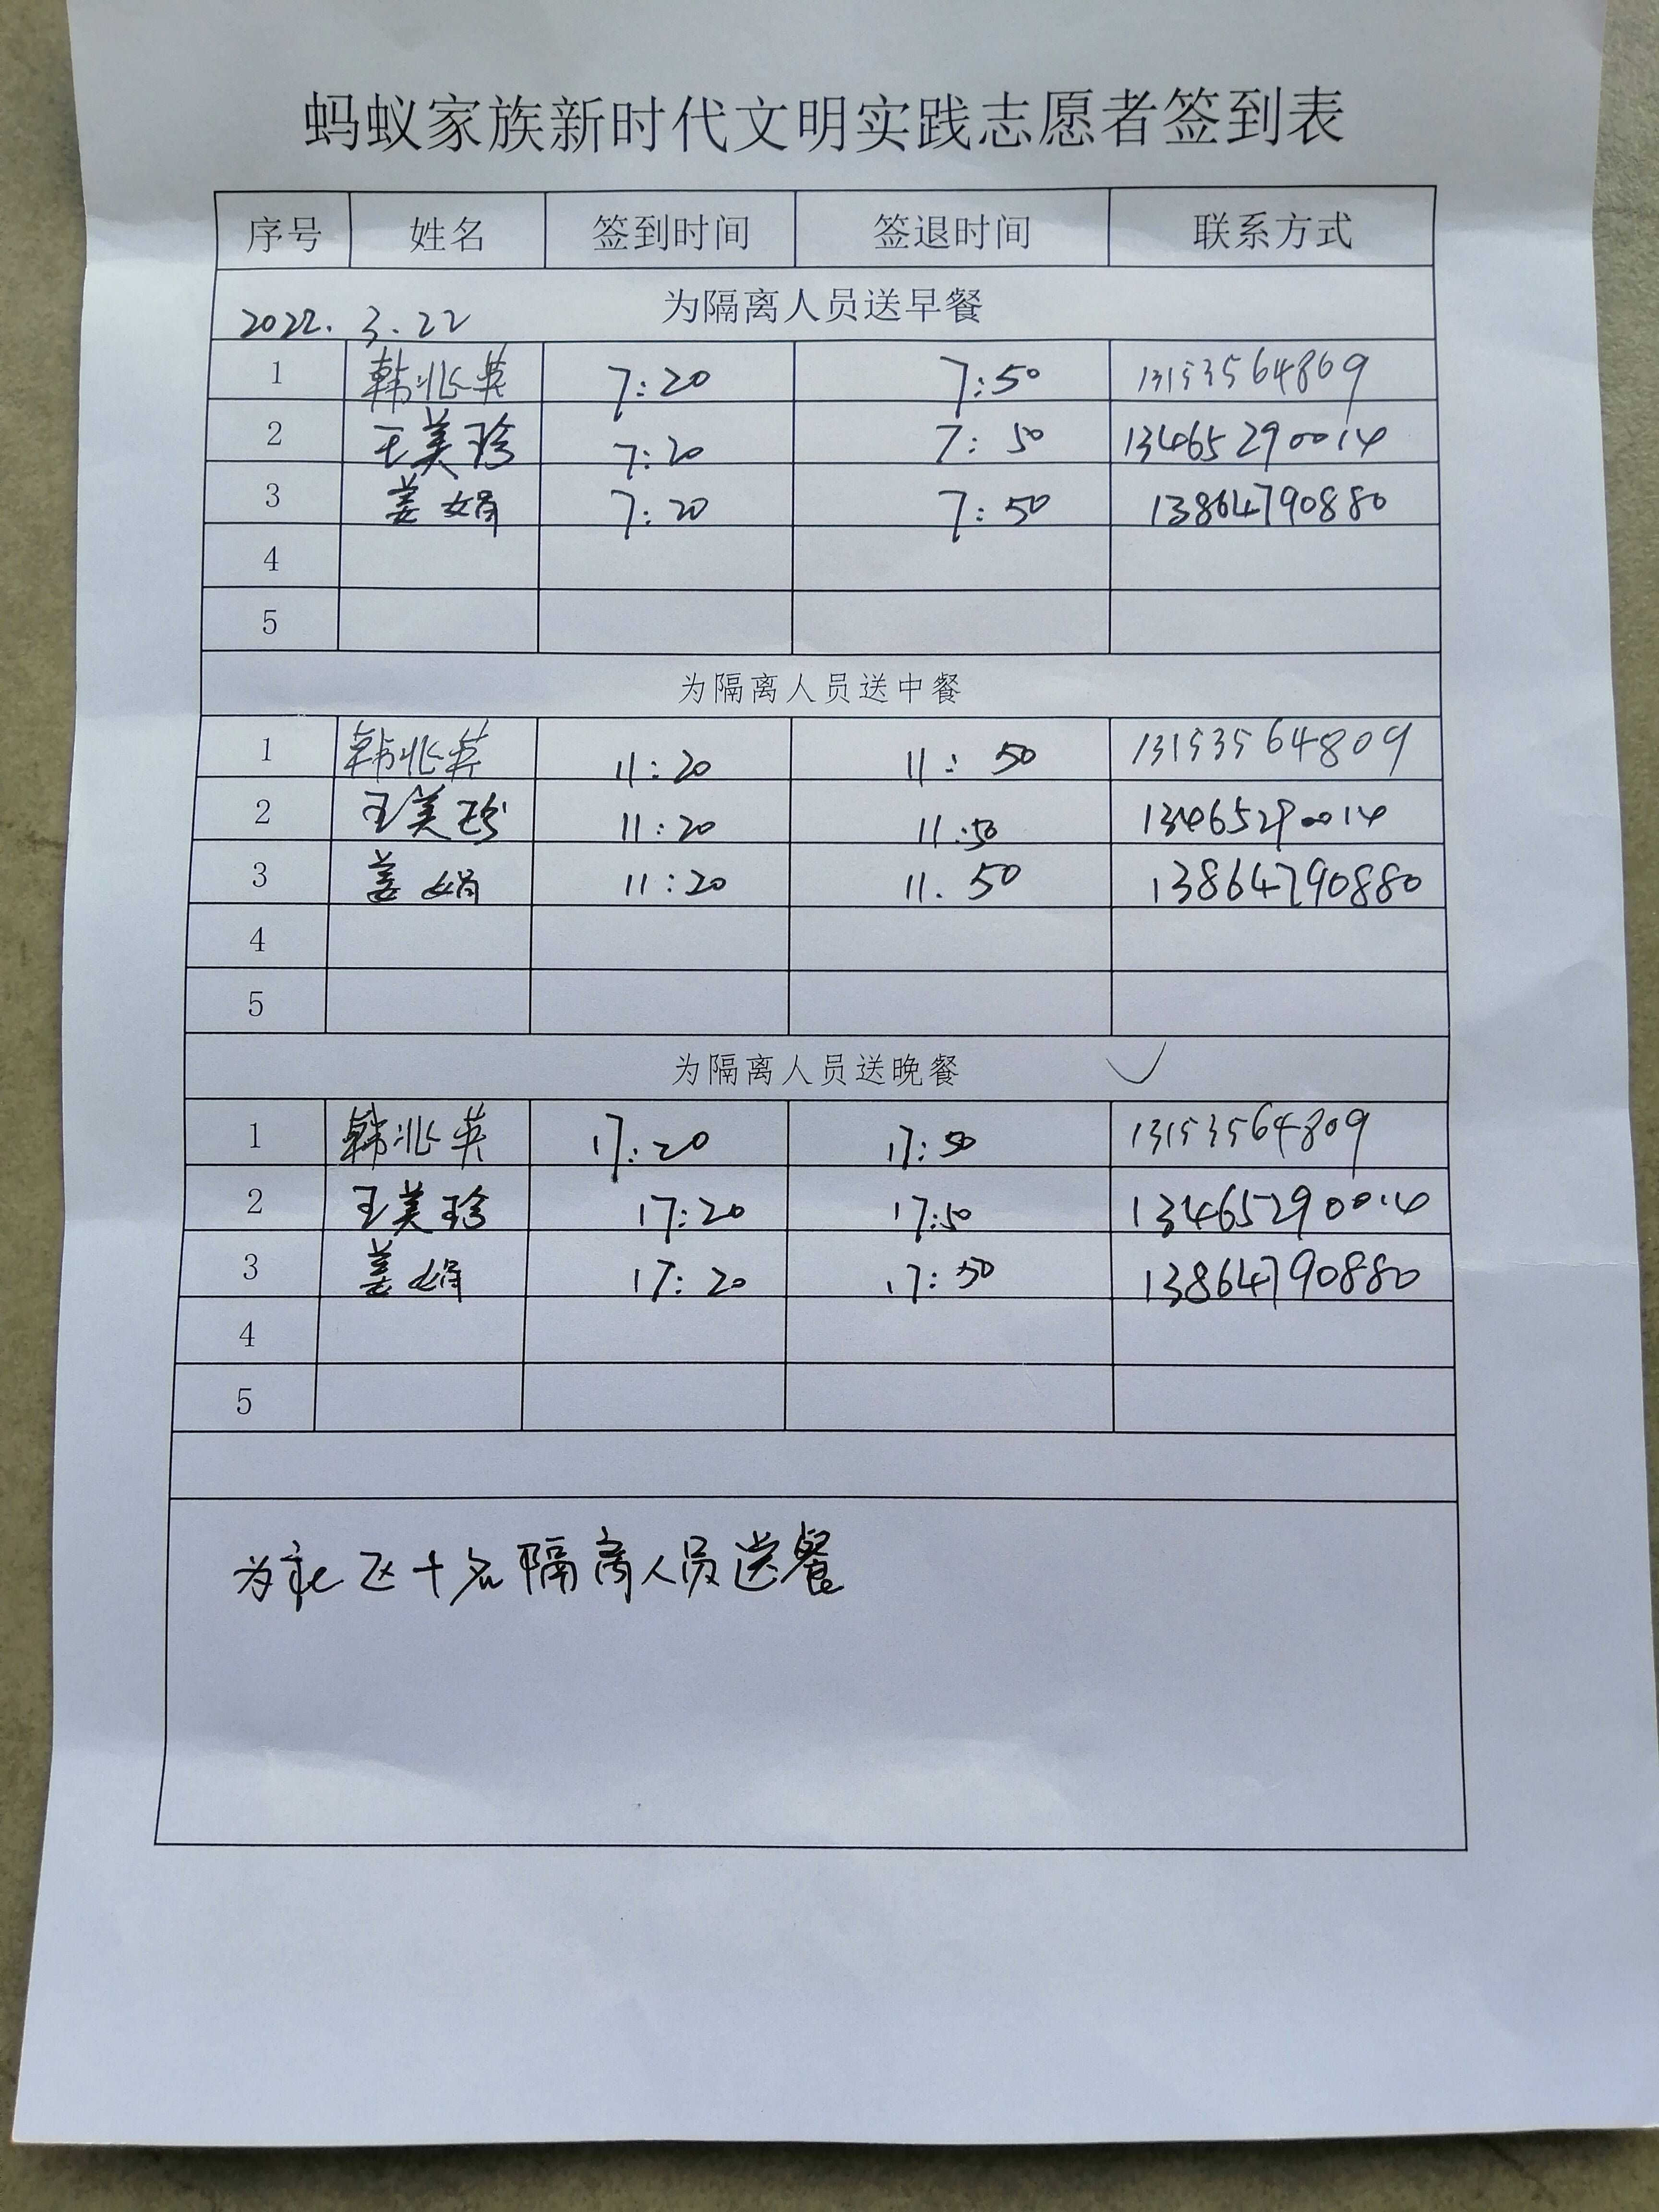 蚂蚁家族新时代文明实践志愿者签到表
序号 姓名 签到时间 签退时间 联系方式
2022.3.22 为隔离人员送早餐
1 韩兆英 7:20 7:50 13153564809
2 王美珍 7:20 7:50 13465290014
3 姜娟 7:20 7:50 13864790880
4
5
为隔离人员送中餐
1 韩兆英 11:20 11:50 13153564809
2 王美珍 11:20 11:50 13465290014
3 姜娟 11:20 11.50 13864790880
4
5
为隔离人员送晚餐 ✓
1 韩兆英 17:20 17:50 13153564809
2 王美珍 17:20 17:50 13465290014
3 姜娟 17:20 17:50 13864790880
4
5
为社区十名隔离人员送餐